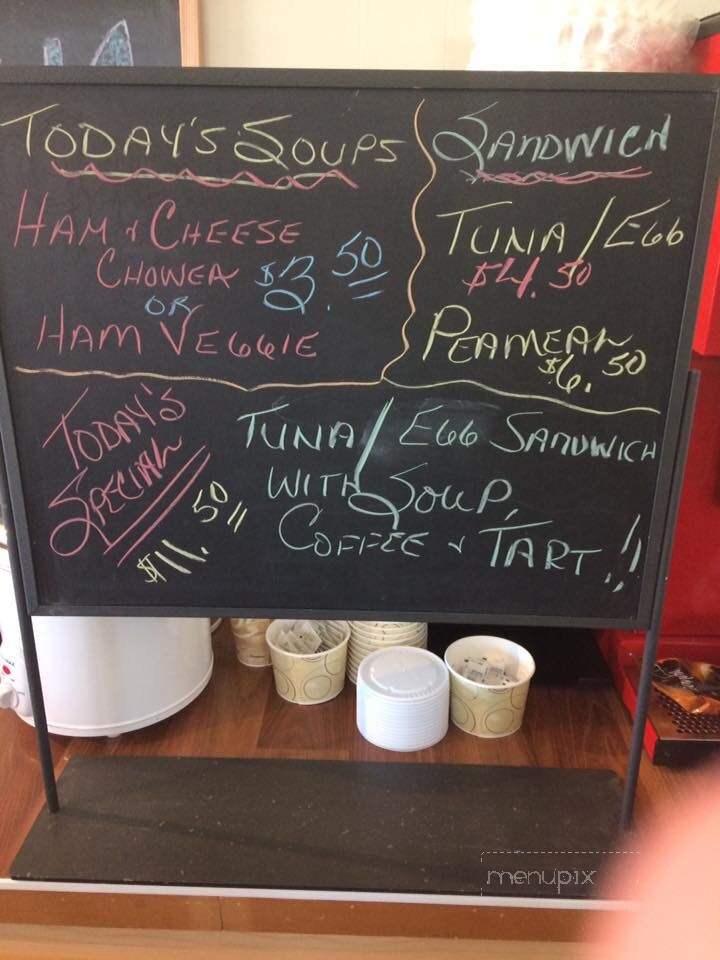 TODAY'S SOUPS
HAM & CHEESE
CHOWER $3.50
OR
HAM VEGGIE
SANDWICH
TUNA/EGG
$4.50
PEAMEAL
$6.50
TODAY'S
SPECIAL
$11.50
TUNA/EGG SANDWICH
WITH SOUP,
COFFEE & TART!!
menupix